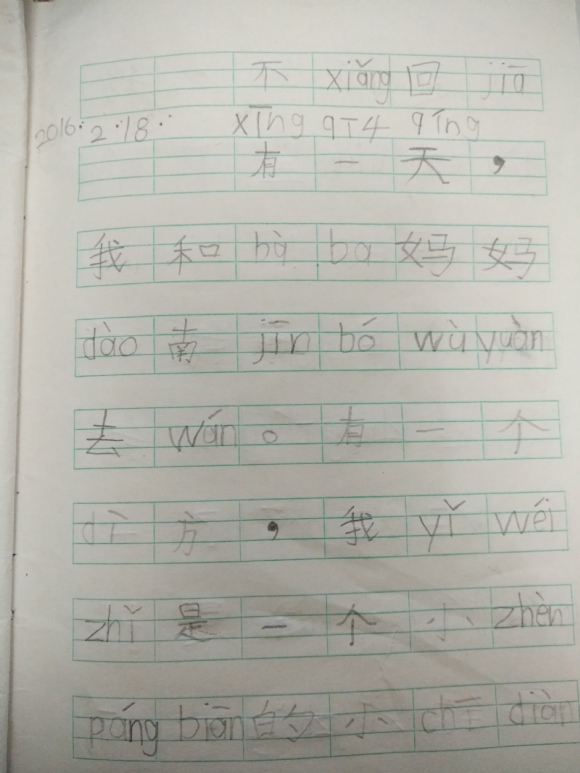 不 xiǎng 回 jiā
2016. 2. 18. xīng qī 4 qíng
有一天，
我和 bà ba 妈妈
dào 南 jīn bó wù yuàn
去 wán。有一个
dì 方，我 yǐ wéi
zhǐ 是一个小 zhèn
páng biān 的小 chī diàn